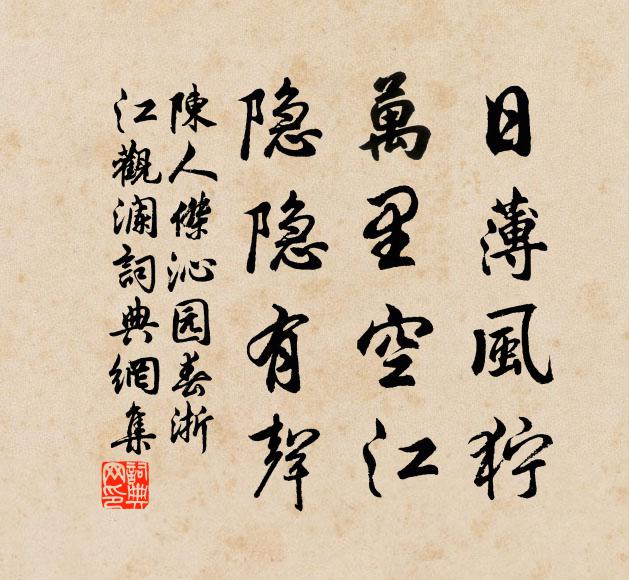 日薄風狞
萬里空江
隐隐有聲
陳人傑沁园春浙
江觀澜詞典網集
詞典网印